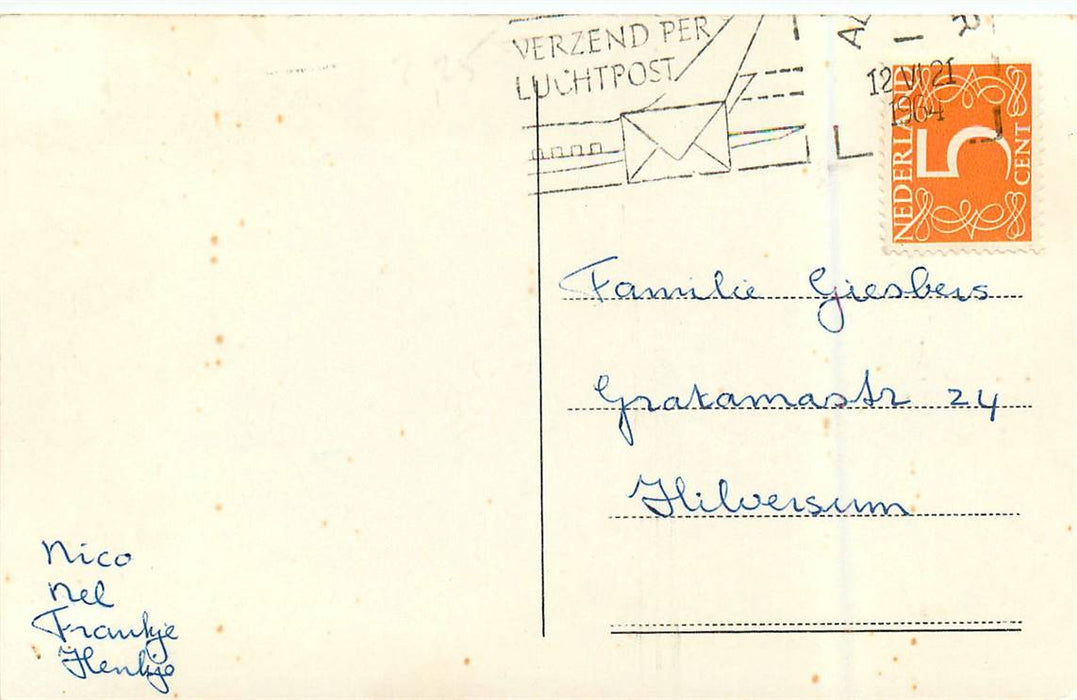 VERZEND PER
LUCHTPOST
12 VI 21
1964
NEDERLAND
5
CENT
Familie Giesbers
Gratamastr 24
Hilversum
Nico
Nel
Frankje
Henkje